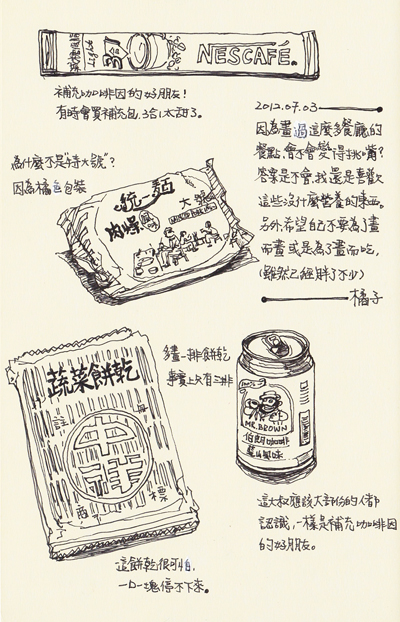 NESCAFÉ.
3in1
補充咖啡因的好朋友!
有時會買補充包,3合1太甜了。
2012.07.03
因為畫過這麼多餐廳的
餐點,會不會變得挑嘴?
答案是不會,我還是喜歡
這些沒什麼營養的東西。
另外希望自己不要為了畫
而畫或是為了畫而吃,
(雖然已經胖了不少)
橘子
為什麼不是"特大號"?
因為橘色包裝
統一麵
肉燥
風味
大號
蔬菜餅乾
中祥
註
冊
商
標
多畫一排餅乾
事實上只有三排
這餅乾很可怕,
一口一塊停不下來。
MR. BROWN
伯朗咖啡
藍山風味
這大叔應該大部份的人都
認識,一樣是補充咖啡因
的好朋友。